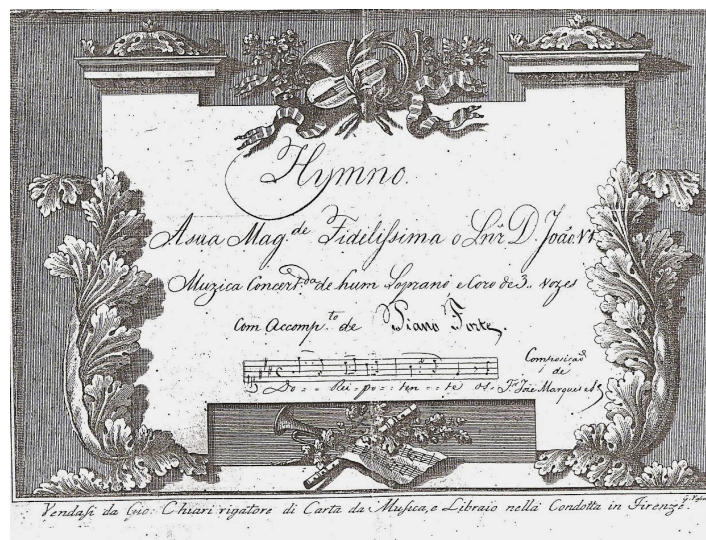 Hymno.
A sua Mag.de Fidilissima o Snr. D. João VI
Muzica Concert.da de hum Soprano e Coro de 3.. vozes
Com Accomp.to de Piano Forte.
Do - - Rei - po - - ten - - te os -
Composicaõ
de
Je. Joze Marques e S.
Vendasi da Gio: Chiari rigatore di Carta da Musica, e Libraio nella Condotta in Firenze.